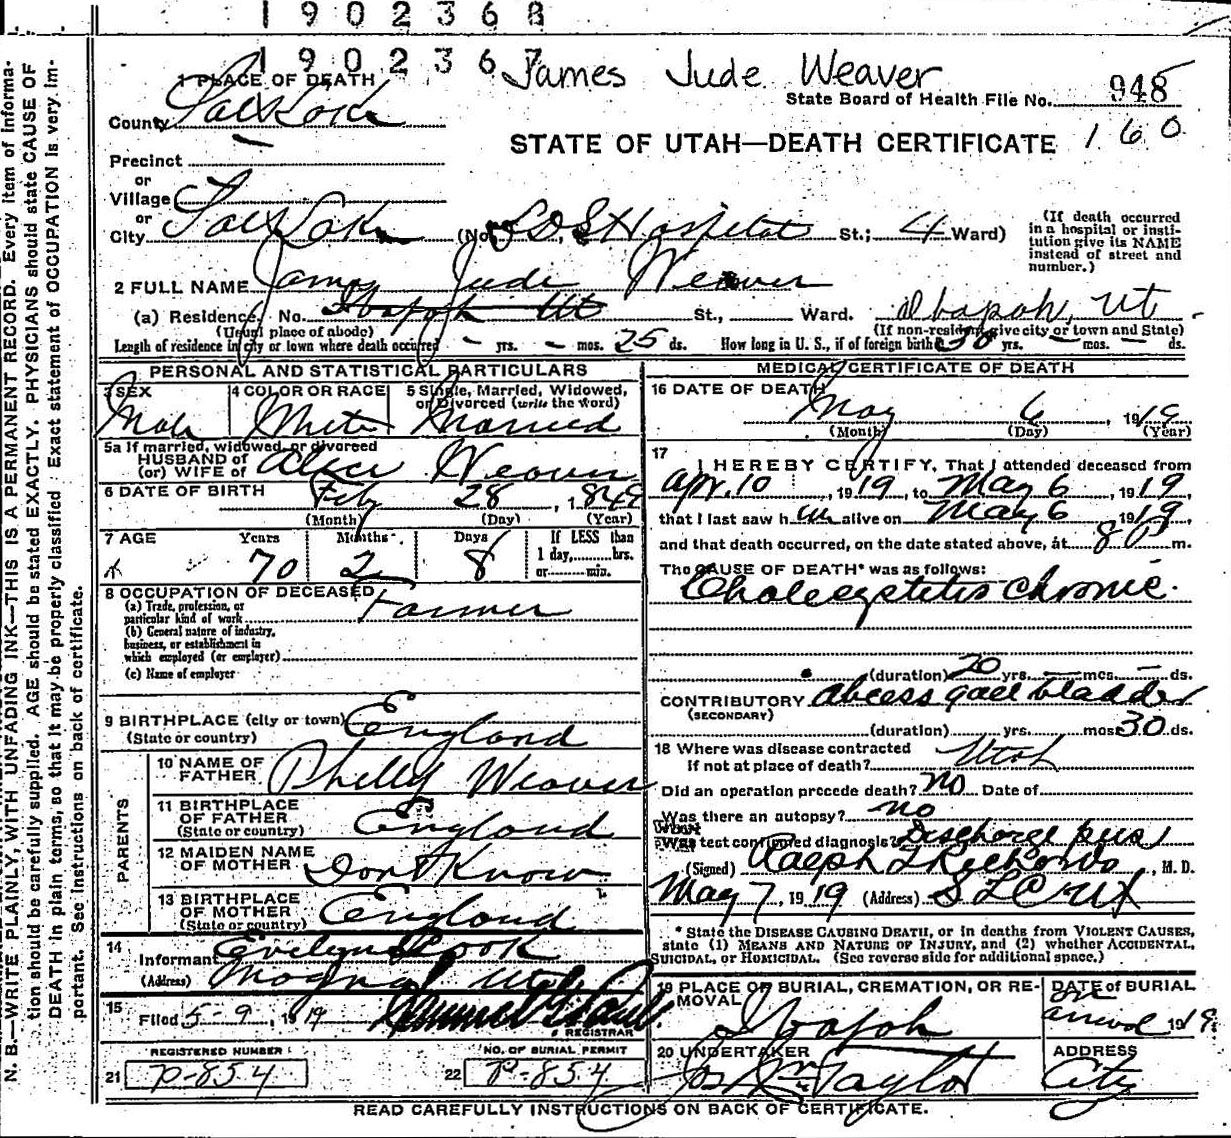 1902368
1902367
James Jude Weaver
1 PLACE OF DEATH
State Board of Health File No. 948
County Salt Lake
STATE OF UTAH—DEATH CERTIFICATE 160
Precinct
or
Village
or
City Salt Lake (No. LDS Hospital St.; 4 Ward)
(If death occurred in a hospital or institution give its NAME instead of street and number.)
2 FULL NAME James Jude Weaver
(a) Residence, No. Ibapah Ut St., Ward. Ibapah, Ut.
(Usual place of abode) (If non-resident give city or town and State)
Length of residence in city or town where death occurred – yrs. – mos. 25 ds. How long in U. S., if of foreign birth? 30 yrs. – mos. – ds.
PERSONAL AND STATISTICAL PARTICULARS
3 SEX Male
4 COLOR OR RACE White
5 Single, Married, Widowed, or Divorced (write the word) Married
5a If married, widowed, or divorced
HUSBAND of
(or) WIFE of Alice Weaver
6 DATE OF BIRTH Feb 28, 1849
(Month) (Day) (Year)
7 AGE Years Months Days If LESS than
1 day, hrs.
or min.
70 2 8
8 OCCUPATION OF DECEASED
(a) Trade, profession, or
particular kind of work Farmer
(b) General nature of industry,
business, or establishment in
which employed (or employer)
(c) Name of employer
9 BIRTHPLACE (city or town)
(State or country) England
PARENTS
10 NAME OF
FATHER Philly Weaver
11 BIRTHPLACE
OF FATHER
(State or country) England
12 MAIDEN NAME
OF MOTHER Dont Know
13 BIRTHPLACE
OF MOTHER
(State or country) England
14
Informant Evelyn Cook
(Address) Magna Utah
15
Filed 5-9, 1919
REGISTRAR
REGISTERED NUMBER
21 P-854
NO. OF BURIAL PERMIT
22 P-854
MEDICAL CERTIFICATE OF DEATH
16 DATE OF DEATH
May 6 1919
(Month) (Day) (Year)
17
I HEREBY CERTIFY, That I attended deceased from
Apr. 10, 1919, to May 6, 1919,
that I last saw him alive on May 6 1919,
and that death occurred, on the date stated above, at 8 P m.
The CAUSE OF DEATH* was as follows:
Cholecystetis Chronic.
(duration) 20 yrs. – mos. – ds.
CONTRIBUTORY abcess gall bladder
(SECONDARY)
(duration) yrs. mos. 30 ds.
18 Where was disease contracted
If not at place of death? Utah
Did an operation precede death? No Date of
Was there an autopsy? no
What test confirmed diagnosis? Discharge pus
(Signed) Ralph T Richards, M. D.
May 7, 1919 (Address) S L C Ut
* State the DISEASE CAUSING DEATH, or in deaths from VIOLENT CAUSES,
state (1) MEANS AND NATURE OF INJURY, and (2) whether ACCIDENTAL,
SUICIDAL, or HOMICIDAL. (See reverse side for additional space.)
19 PLACE OF BURIAL, CREMATION, OR REMOVAL
Ibapah
DATE of BURIAL
on
arrival 1919
20 UNDERTAKER
Jos Wm Taylor
ADDRESS
City
READ CAREFULLY INSTRUCTIONS ON BACK OF CERTIFICATE.
N. B.—WRITE PLAINLY, WITH UNFADING INK—THIS IS A PERMANENT RECORD. Every item of information should be carefully supplied. AGE should be stated EXACTLY. PHYSICIANS should state CAUSE OF
DEATH in plain terms, so that it may be properly classified. Exact statement of OCCUPATION is very important. See instructions on back of certificate.